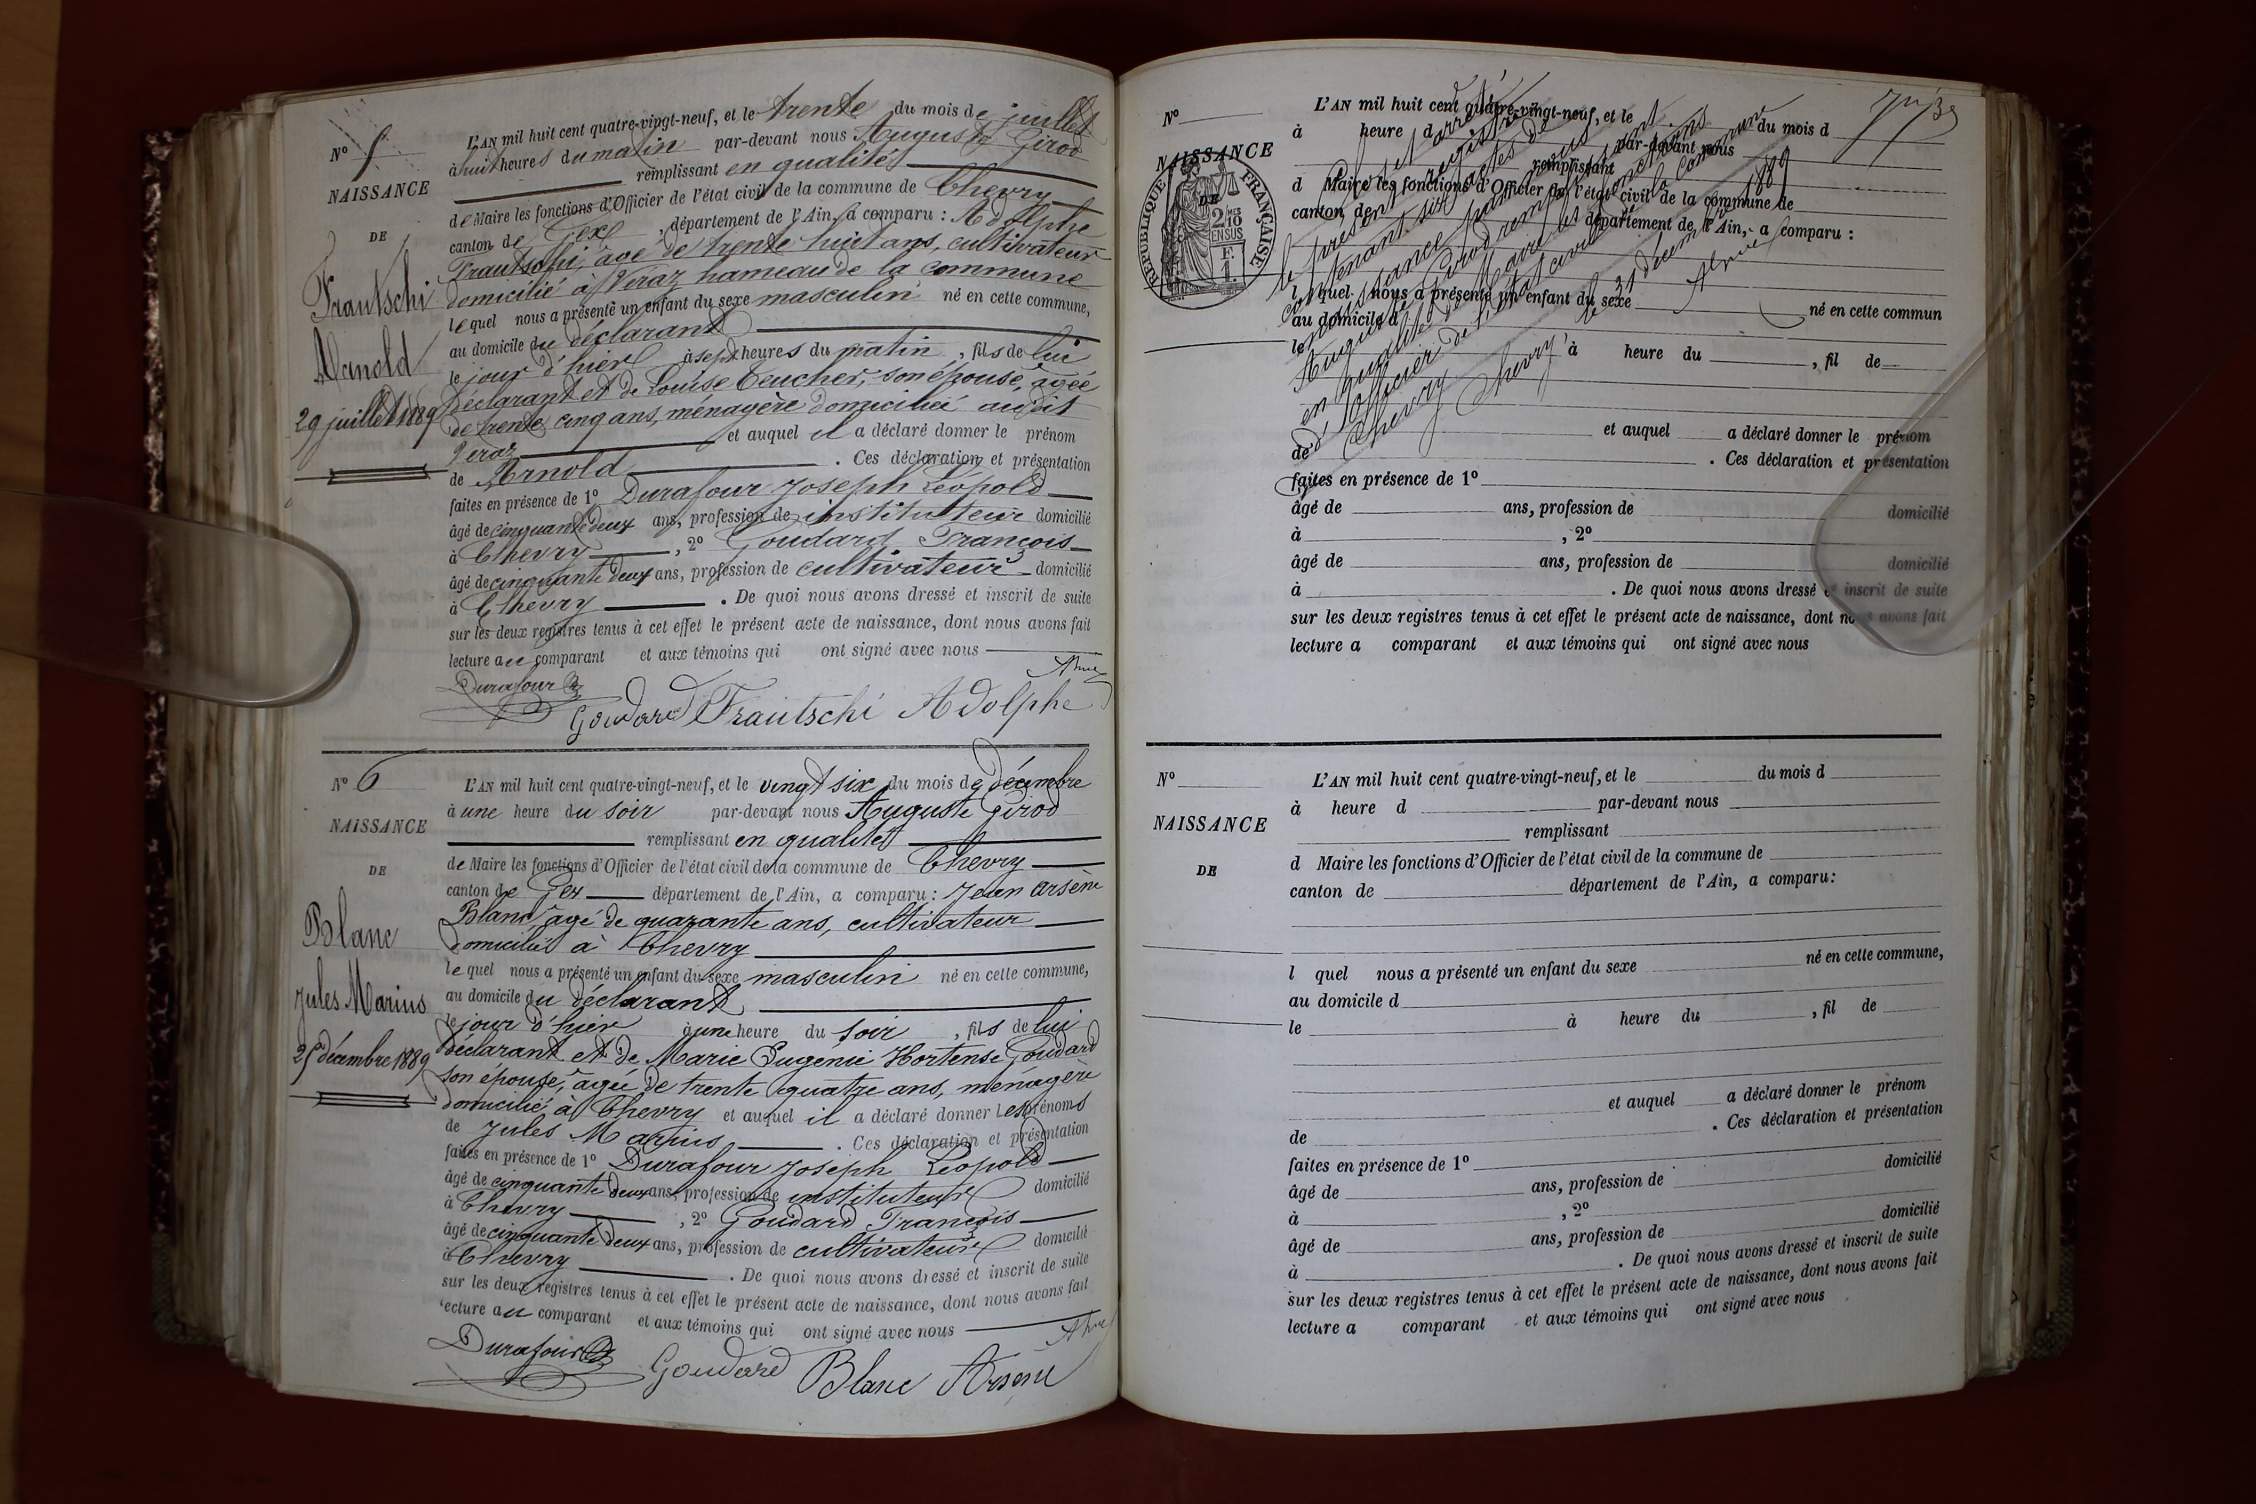 N° 5
NAISSANCE
DE
Frautschi
Arnold
29 juillet 1889
L'AN mil huit cent quatre-vingt-neuf, et le trente du mois de juillet
à huit heures du matin par-devant nous Auguste Girod
remplissant en qualité
de Maire les fonctions d'Officier de l'état civil de la commune de Chevry
canton de Gex, département de l'Ain, a comparu : Adolphe
Frautschi, âgé de trente huit ans, cultivateur
domicilié à Veraz hameau de la commune
lequel nous a présenté un enfant du sexe masculin né en cette commune,
au domicile du déclarant
le jour d'hier à sept heures du matin, fils de lui
déclarant et de Louise Teucher, son épouse, âgée
de trente cinq ans, ménagère domiciliée audit
Veraz et auquel il a déclaré donner le prénom
de Arnold . Ces déclaration et présentation
faites en présence de 1° Durafour Joseph Léopold
âgé de cinquante deux ans, profession de instituteur domicilié
à Chevry , 2° Goudard François
âgé de cinquante deux ans, profession de cultivateur domicilié
à Chevry . De quoi nous avons dressé et inscrit de suite
sur les deux registres tenus à cet effet le présent acte de naissance, dont nous avons fait
lecture au comparant et aux témoins qui ont signé avec nous
Durafour
Goudard Frautschi Adolphe
N° 6
NAISSANCE
DE
Blanc
Jules Marius
25 décembre 1889
L'AN mil huit cent quatre-vingt-neuf, et le vingt six du mois de décembre
à une heure du soir par-devant nous Auguste Girod
remplissant en qualité
de Maire les fonctions d'Officier de l'état civil de la commune de Chevry
canton de Gex département de l'Ain, a comparu : Jean Arsène
Blanc âgé de quarante ans, cultivateur
domicilié à Chevry
lequel nous a présenté un enfant du sexe masculin né en cette commune,
au domicile du déclarant
le jour d'hier à une heure du soir , fils de lui
déclarant et de Marie Eugénie Hortense Goudard
son épouse, âgée de trente quatre ans, ménagère
domicilié à Chevry et auquel il a déclaré donner les prénoms
de Jules Marius . Ces déclaration et présentation
faites en présence de 1° Durafour Joseph Léopold
âgé de cinquante deux ans, profession de instituteur domicilié
à Chevry , 2° Goudard François
âgé de cinquante deux ans, profession de cultivateur domicilié
à Chevry . De quoi nous avons dressé et inscrit de suite
sur les deux registres tenus à cet effet le présent acte de naissance, dont nous avons fait
lecture au comparant et aux témoins qui ont signé avec nous
Durafour
Goudard Blanc Arsène
N°
NAISSANCE
DE
RÉPUBLIQUE FRANÇAISE
2 10MES
EN SUS
F.
1
L'AN mil huit cent quatre-vingt-neuf, et le du mois d
à heure d par-devant nous
remplissant
d Maire les fonctions d'Officier de l'état civil de la commune de
canton de département de l'Ain, a comparu :
l quel nous a présenté un enfant du sexe né en cette commun
au domicile d
le à heure du , fil de
et auquel a déclaré donner le prénom
de . Ces déclaration et présentation
faites en présence de 1°
âgé de ans, profession de domicilié
à , 2°
âgé de ans, profession de domicilié
à . De quoi nous avons dressé et inscrit de suite
sur les deux registres tenus à cet effet le présent acte de naissance, dont nous avons fait
lecture a comparant et aux témoins qui ont signé avec nous
le présent registre
contenant six actes de
naissance
Auguste Girod remplissant
en qualité de Maire les fonctions
d'officier de l'état civil de la commune
Chevry
Chevry le 31 décembre 1889
N°
NAISSANCE
DE
L'AN mil huit cent quatre-vingt-neuf, et le du mois d
à heure d par-devant nous
remplissant
d Maire les fonctions d'Officier de l'état civil de la commune de
canton de département de l'Ain, a comparu:
l quel nous a présenté un enfant du sexe né en cette commune,
au domicile d
le à heure du , fil de
et auquel a déclaré donner le prénom
de . Ces déclaration et présentation
faites en présence de 1°
âgé de ans, profession de domicilié
à , 2°
âgé de ans, profession de domicilié
à . De quoi nous avons dressé et inscrit de suite
sur les deux registres tenus à cet effet le présent acte de naissance, dont nous avons fait
lecture a comparant et aux témoins qui ont signé avec nous